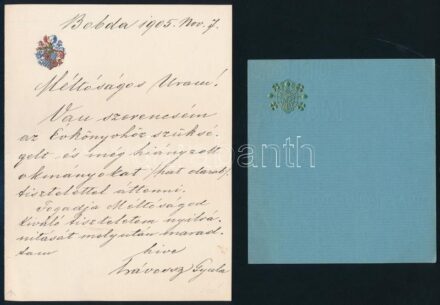 Bobda 1905. Nov. 7.
Méltóságos Uram!
Van szerencsém
az Évkönyvhöz szüksé-
gelt és még hiányzott
okmányokat /hat darab/
tisztelettel áttenni.
Fogadja Méltóságod
kiváló tiszteletem nyilvá-
nítását mely után marad-
tam
híve
Gyula